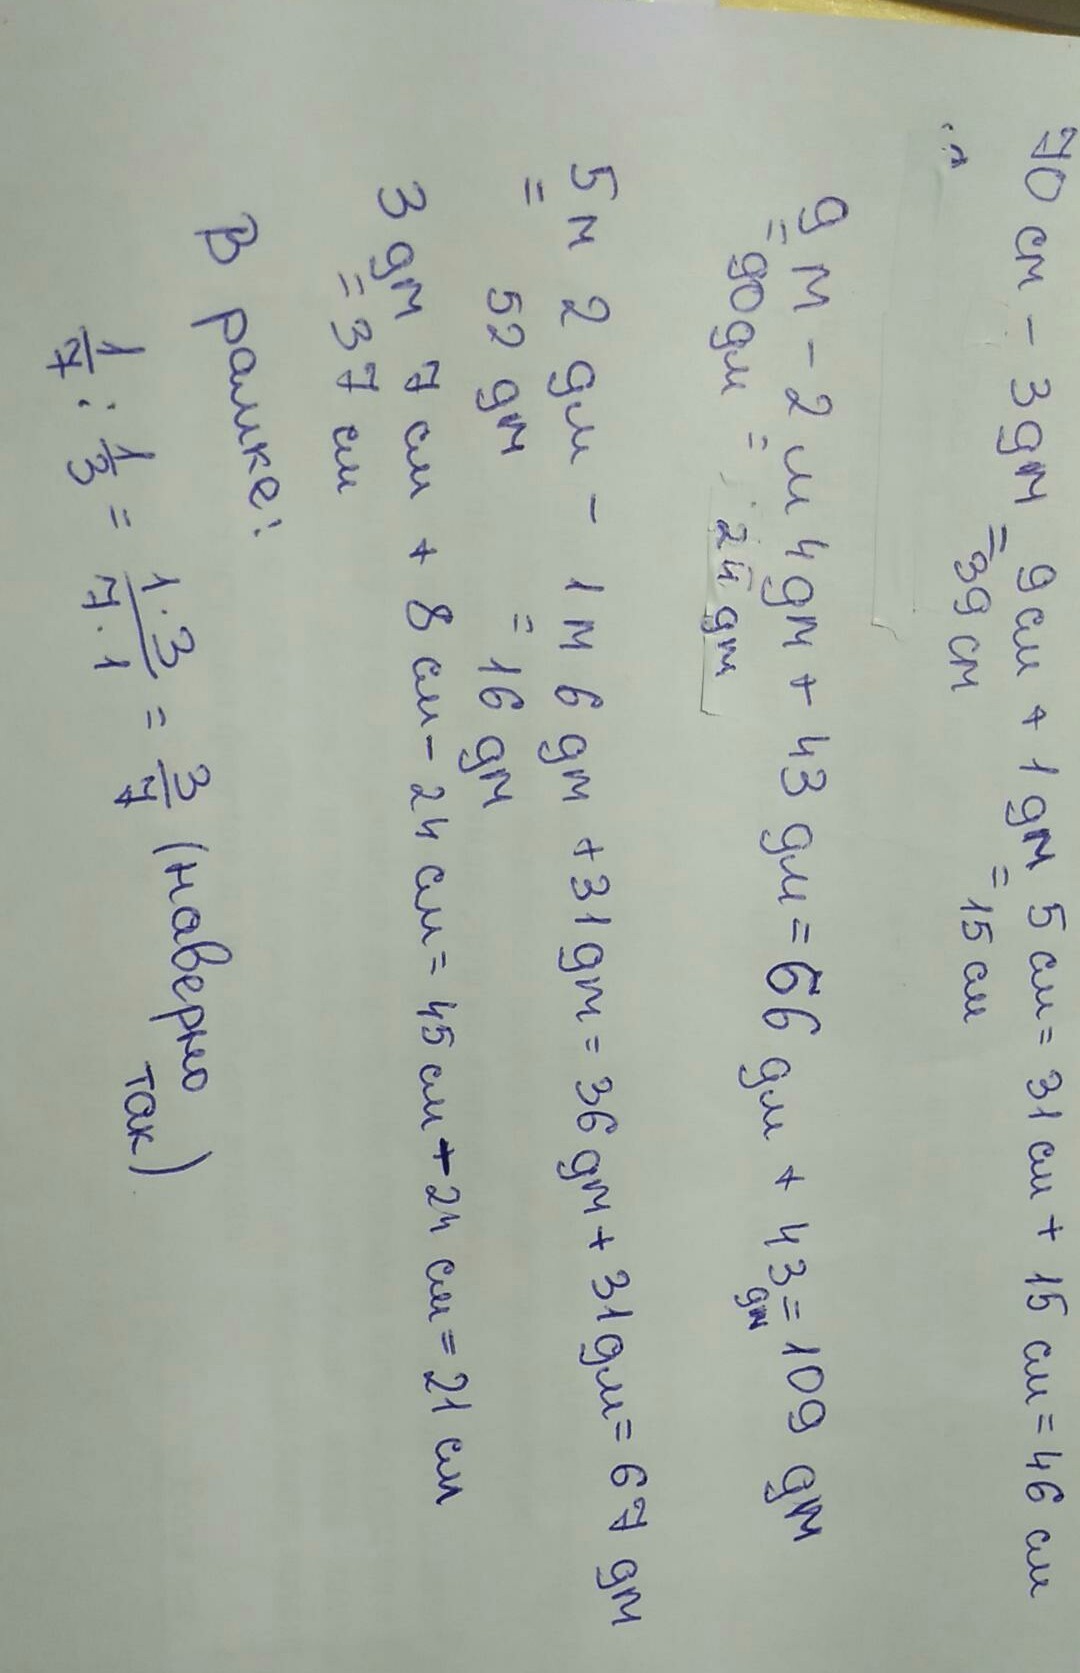 70 см - 3дм 9см + 1дм 5см = 31см + 15см = 46см
= 39см = 15см
9м - 2м 4дм + 43дм = 66дм + 43дм = 109дм
= 90дм = 24дм
5м 2дм - 1м 6дм + 31дм = 36дм + 31дм = 67дм
= 52дм = 16дм
3дм 7см + 8см - 24см = 45см + 24см = 21см
= 37см
В рамке:
1/7 : 1/3 = 1·3/7·1 = 3/7 (наверно
так)